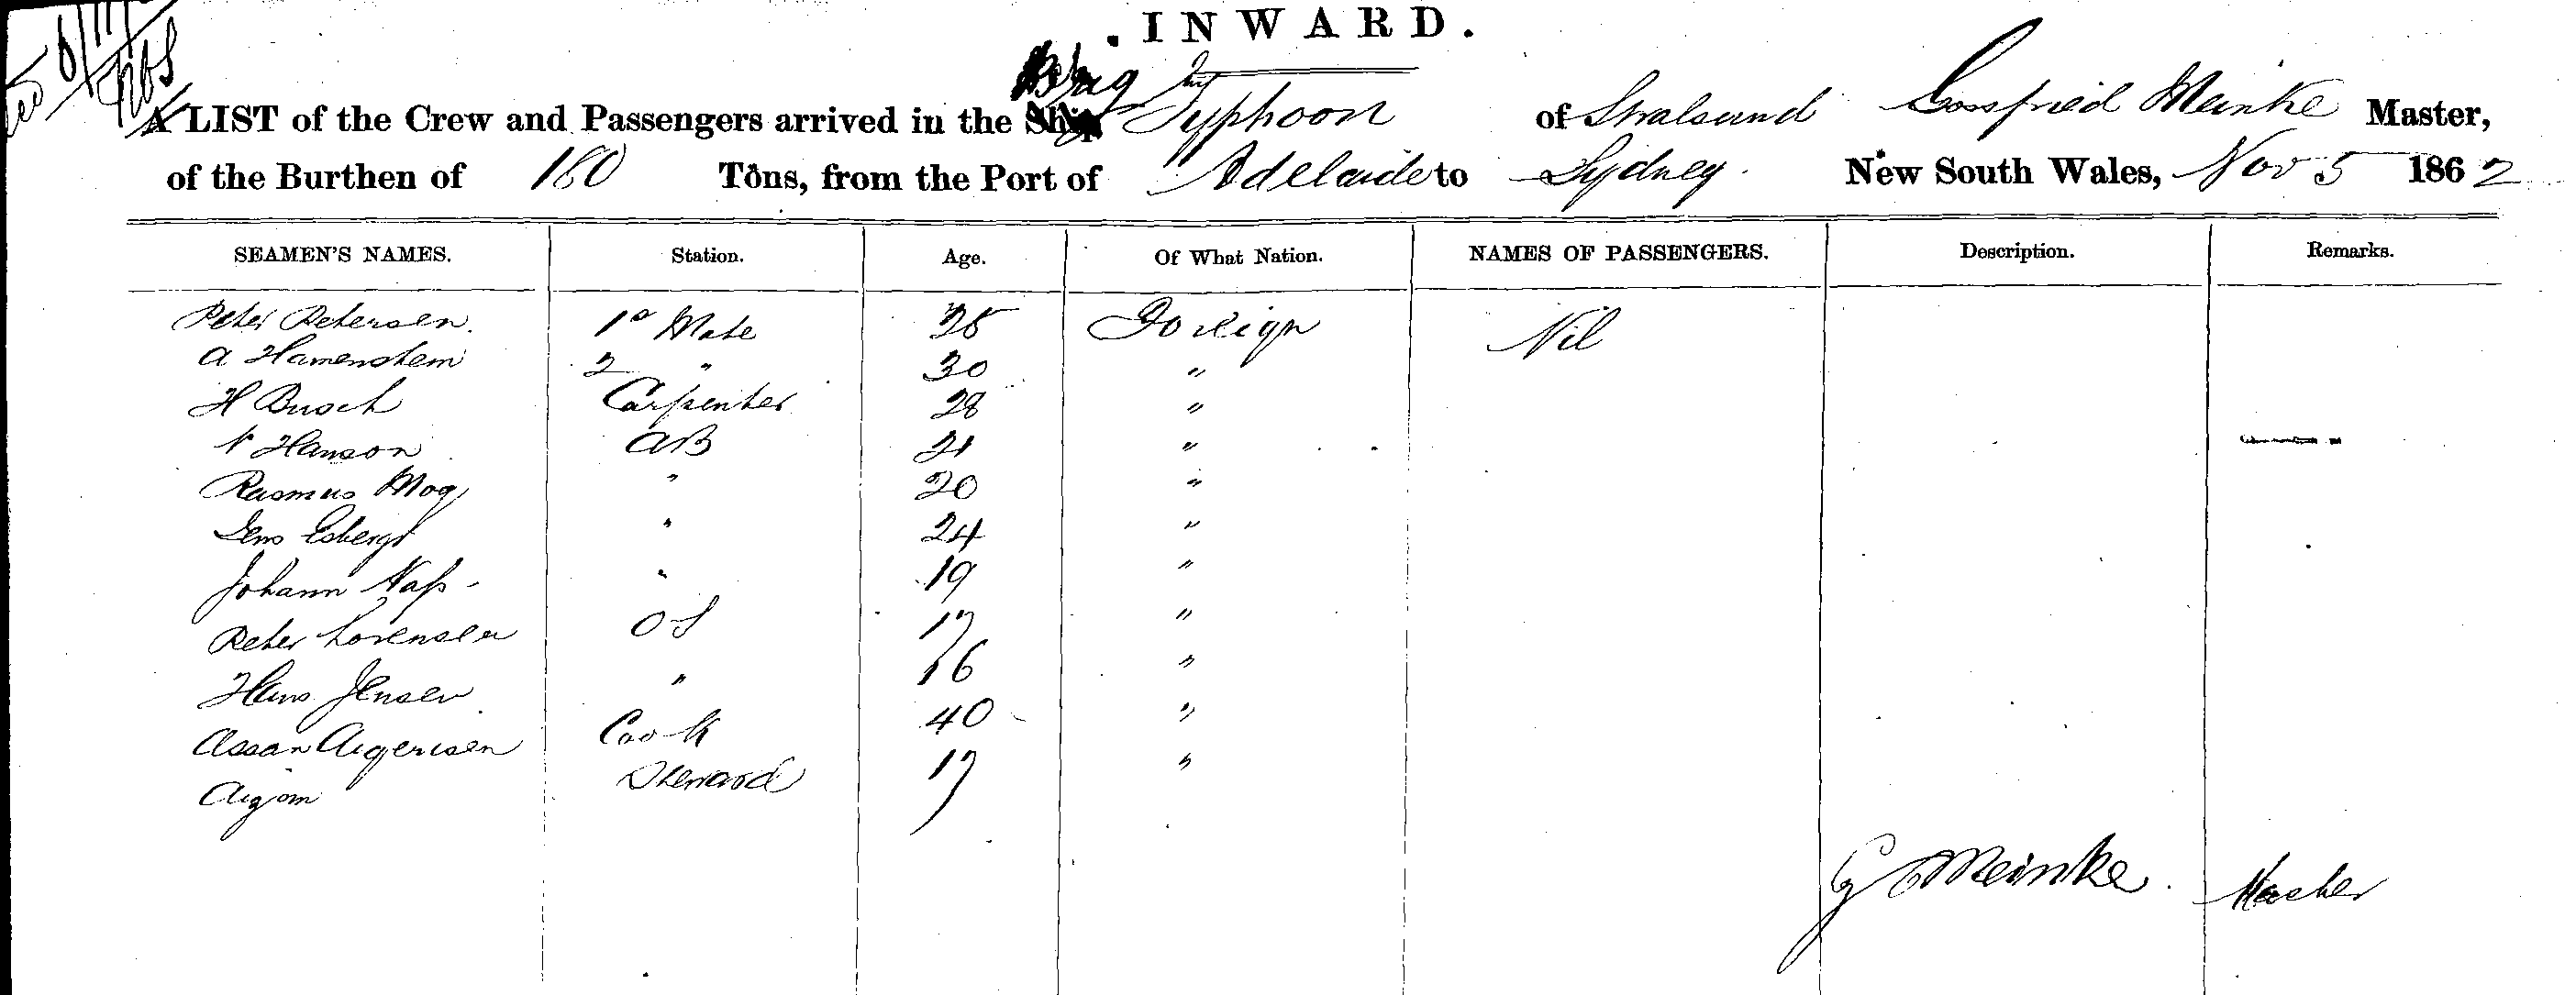 . INWARD.
A LIST of the Crew and Passengers arrived in the Brig Typhoon of Stralsund Gossfried Meinke Master,
of the Burthen of 180 Tons, from the Port of Adelaide to Sydney. New South Wales, Nov 5 1862
SEAMEN'S NAMES. Station. Age. Of What Nation. NAMES OF PASSENGERS. Description. Remarks.
Peter Petersen. 1º Mate 25 Foreign Nil
A Hamenstem 2 " 30 "
H Busch Carpenter 28 "
N Hanson AB 21 "
Rasmus Mog " 20 "
Jens Esbergt " 24 "
Johann Naſs " 19 "
Peter Lorensen OS 17 "
Hans Jensen " 16 "
Assan Aigerisen Cook 40 "
Aigom Steward 17 "
G Meinke. Master